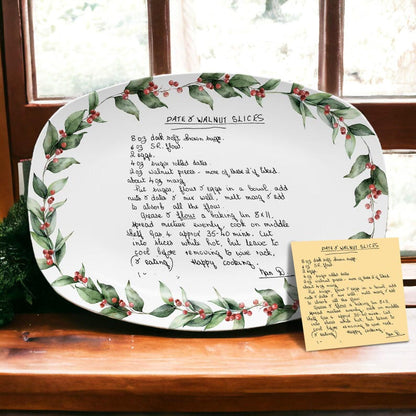 DATE & WALNUT SLICES
8 oz dark soft brown sugar
6 oz S.R. flour
2 eggs.
4 oz sugar rolled dates
2 oz walnut pieces - more of these 2 if liked.
about 4 oz marg
Put sugar, flour & eggs in a bowl, add
nuts & dates & mix well, melt marg & add
to absorb all the flour
Grease & flour a baking tin 8x11,
spread mixture evenly, cook on middle
shelf Gas 4 approx 35-40 mins. Cut
into slices while hot, but leave to
cool before removing to wire rack,
(& eating) Happy Cooking,
Nan
DATE & WALNUT SLICES
8 oz dark soft brown sugar
6 oz S.R. flour
2 eggs.
4 oz sugar rolled dates
2 oz walnut pieces - more of these 2 if liked.
about 4 oz marg
Put sugar, flour & eggs in a bowl, add
nuts & dates & mix well, melt marg & add
to absorb all the flour
Grease & flour a baking tin 8x11,
spread mixture evenly, cook on middle
shelf Gas 4 approx 35-40 mins. Cut
into slices while hot, but leave to
cool before removing to wire rack,
(& eating) Happy Cooking,
Nan